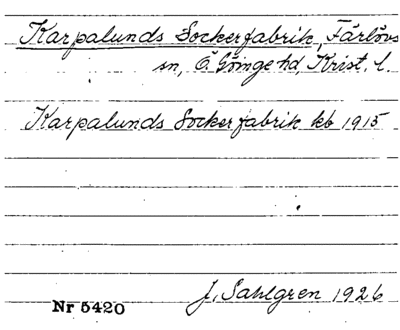 Karpalunds Sockerfabrik, Färlövs
sn, Ö. Göinge hd, Krist. l.
Karpalunds Sockerfabrik kb 1915
J. Sahlgren 1926
Nr 5420